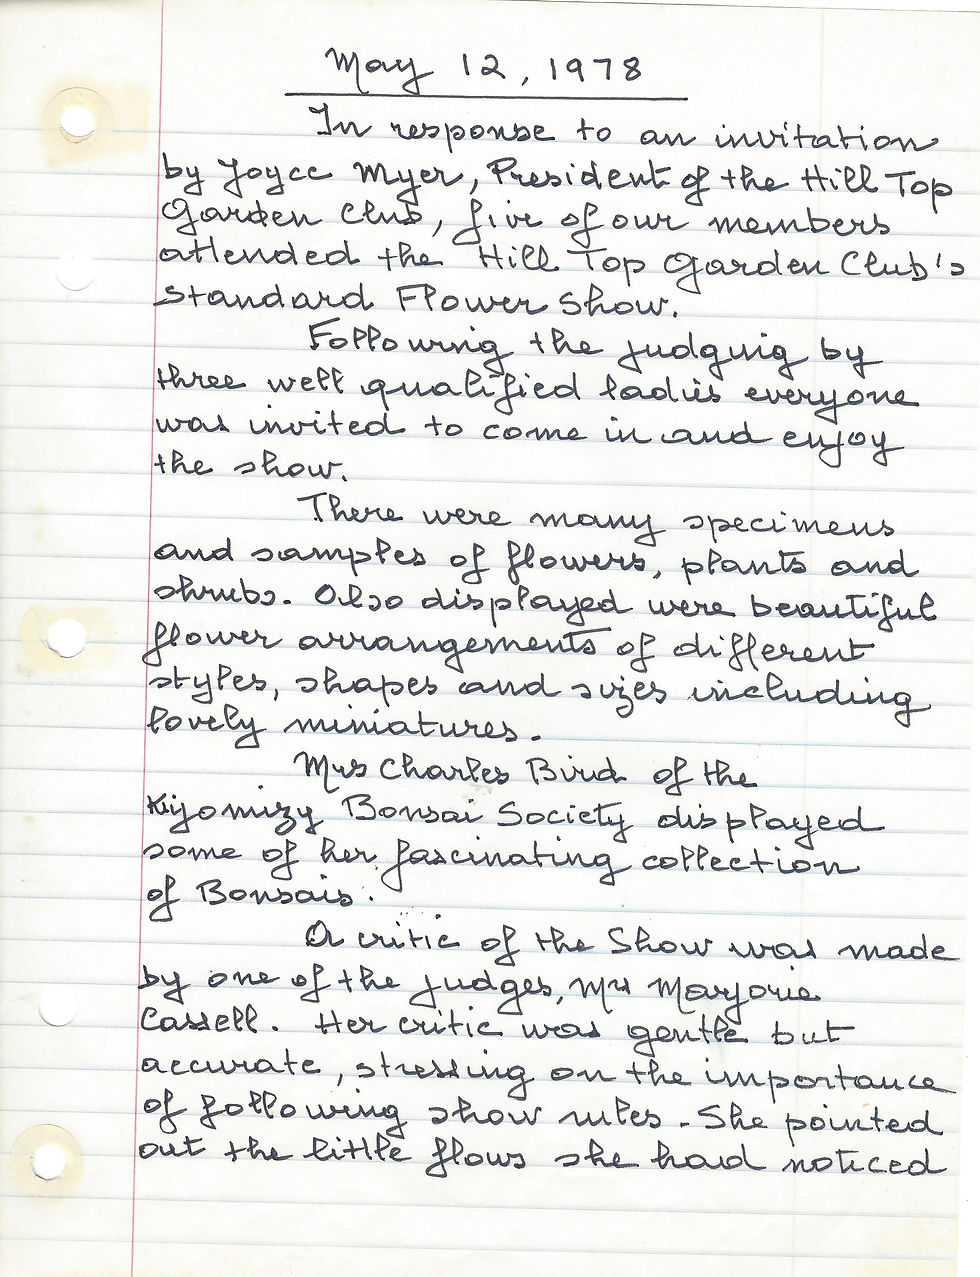 May 12, 1978
In response to an invitation
by Joyce Myer, President of the Hill Top
Garden Club, five of our members
attended the Hill Top Garden Club's
Standard Flower Show.
Following the judging by
three well qualified ladies everyone
was invited to come in and enjoy
the show.
There were many specimens
and samples of flowers, plants and
shrubs. Also displayed were beautiful
flower arrangements of different
styles, shapes and sizes including
lovely miniatures.
Mrs Charles Bird of the
Kiyomizy Bonsai Society displayed
some of her fascinating collection
of Bonsais.
A critic of the Show was made
by one of the judges, Mrs Marjorie
Cassell. Her critic was gentle but
accurate, stressing on the importance
of following show rules. She pointed
out the little flows she had noticed